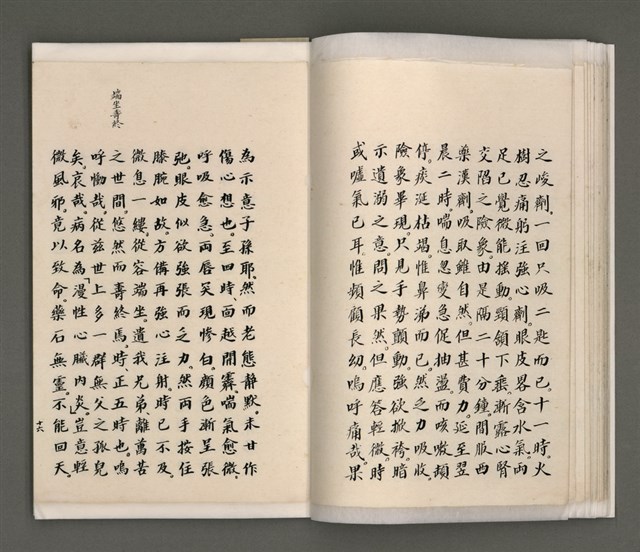 之峻劑一回只吸二匙而已十一時火
樹忍痛躬注強心劑眼皮畧含水氣兩
足已覺微能搖動頸領下垂漸露心腎
交陷之險象由是隔二十分鐘間服西
藥漢劑吸取雖自然但甚費力延至翌
晨二時喘息忽變急促抽盪而咳嗽頓
停痰涎枯竭惟鼻涕而已然之力吸收
險象畢現只見手勢顫動強欲掀袴暗
示遺溺之意問之果然但應答輕微時
或噓氣已耳惟頻顧長幼嗚呼痛哉果
為示意子孫耶然而老態靜默未甘作
傷心想也至四時面越開霽喘氣愈微
呼吸愈急兩唇笑現慘白顏色漸呈張
弛眼皮似欲強張而乏力然兩手按住
膝腕如故方備再強心注射時已不及
微息一縷從容端坐遺我兄弟離萬苦
之世間悠然而壽終焉時正五時也嗚
呼慟哉從茲世上多一群無父之孤兒
矣哀哉病名為「漫性心臟內炎」豈意輕
微風邪竟以致命藥石無靈不能回天
端坐壽終
十六